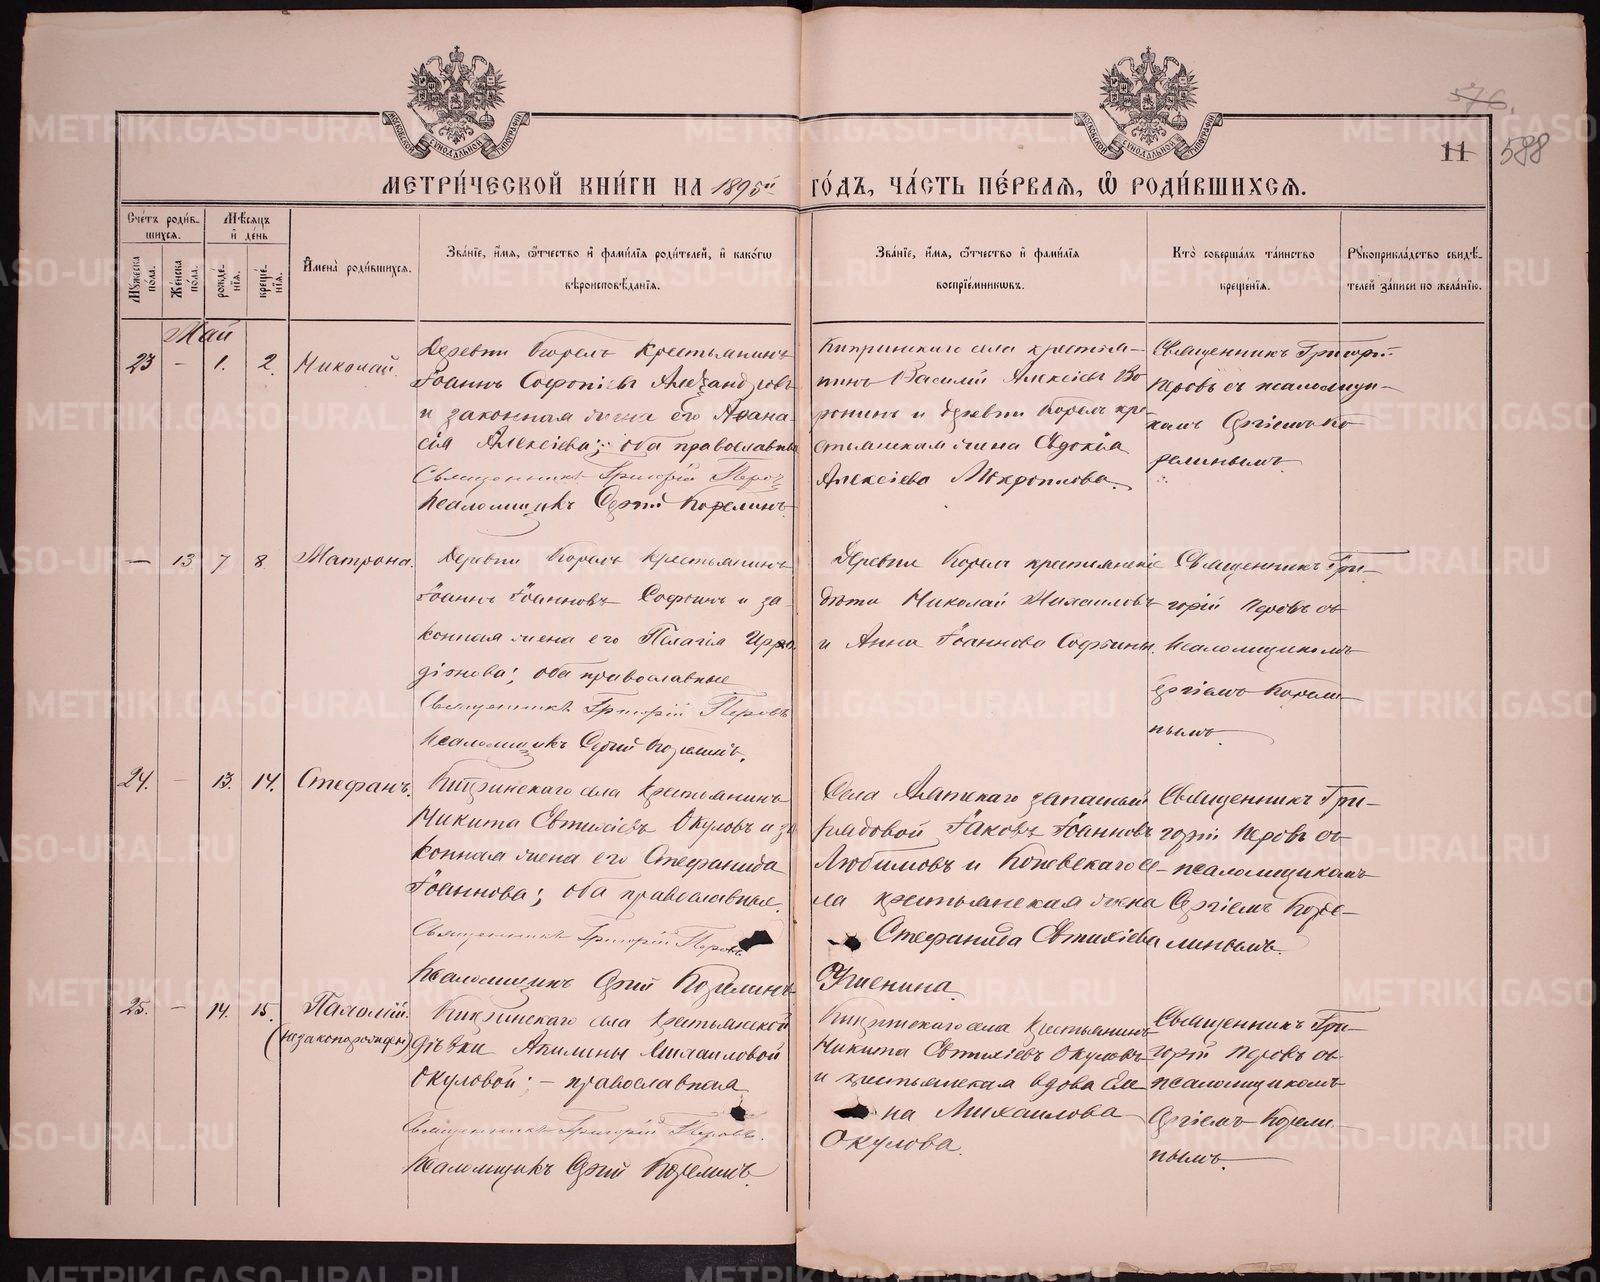 576.
11 588
МОСКОВСКОЙ СѴНОДАЛЬНОЙ ТИПОГРАФІИ
МОСКОВСКОЙ СѴНОДАЛЬНОЙ ТИПОГРАФІИ
МЕТРИ́ЧЕСКОЙ КНИ́ГИ НА 1895й ГО́ДЪ, ЧА́СТЬ ПЕ́РВАЯ, Ѡ РОДИ́ВШИХСЯ.
Сче́тъ роди́вшихся.
Мѣ́сяцъ и де́нь
Му́жеска по́ла.
Же́нска по́ла.
рожде́нїя.
креще́нїя.
Имена̀ роди́вшихся.
Зва́нїе, и́мя, ѻ́тчество и фами́лїя роди́телей, и како́гѡ вѣроисповѣ́данїя.
Зва́нїе, и́мя, ѻ́тчество и фами́лїя воспрїе́мникѡвъ.
Кто̀ соверша́лъ та́инство креще́нїя.
Рꙋкоприкла́дство свидѣ́телей за́писи по жела́нїю.
Май
23 – 1. 2. Николай.
Деревни Корелъ Крестьянинъ
Іоаннъ Софоніевъ Александровъ
и законная жена его Афана-
сія Алексіева; оба православные
Священникъ Григорій Перовъ
Псаломщикъ Сергій Корелинъ
Кипринскаго села крестья-
нинъ Василій Алексіевъ Во
ронинъ и деревни Корелъ кре-
стьянская жена Евдокія
Алексіева Мокроносова.
Священникъ Григорій
Перовъ съ псаломщи-
комъ Сергіемъ Ко
релинымъ.
– 13 7 8 Матрона.
Деревни Корелъ крестьянинъ
Іоаннъ Іоанновъ Софьинъ и за-
конная жена его Пелагія Иро-
діонова; оба православные
Священникъ Григорій Перовъ
Псаломщикъ Сергій Корелинъ.
Деревни Корелъ крестьянскіе
дѣти Николай Михаиловъ
и Анна Іоаннова Софьины.
Священникъ Гри-
горій Перовъ съ
псаломщикомъ
Сергіемъ Корели-
нымъ.
24. – 13. 14. Стефанъ.
Кипринскаго села крестьянинъ
Никита Евтихіевъ Окуловъ и за
конная жена его Стефанида
Іоаннова; оба православные.
Священникъ Григорій Перовъ
Псаломщикъ Сергій Корелинъ
Села запасный
рядовой Іаковъ Іоанновъ
Любимовъ и се-
ла крестьянская жена
Стефанида Евтихіева
Священникъ Гри-
горій Перовъ съ
псаломщикомъ
Сергіемъ Коре-
линымъ.
25. – 14. 15. Пахомій.
(незаконорожден)
Кипринскаго села крестьянской
дѣвки Акилины Михаиловой
Окуловой; – православная
Священникъ Григорій Перовъ.
Псаломщикъ Сергій Корелинъ.
Кипринскаго села крестьянинъ
Никита Евтихіевъ Окуловъ
и крестьянская вдова Еле
на Михаилова
Окулова.
Священникъ Гри-
горій Перовъ съ
псаломщикомъ
Сергіемъ Корели-
нымъ.
METRIKI.GASO-URAL.RU